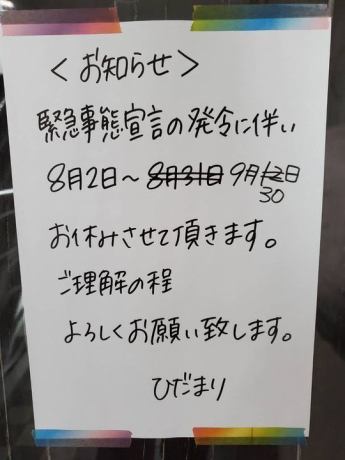 ＜お知らせ＞
緊急事態宣言の発令に伴い
8月2日～8月31日9月12日
30
お休みさせて頂きます。
ご理解の程
よろしくお願い致します。
ひだまり